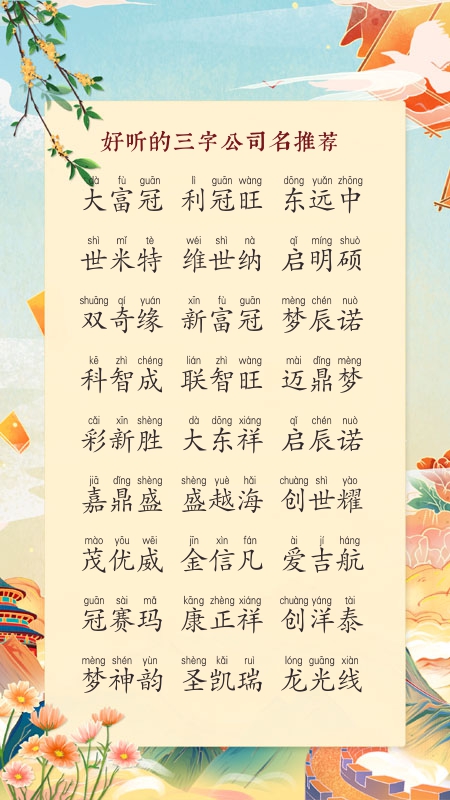 好听的三字公司名推荐
dà fù guān lì guān wàng dōng yuǎn zhōng
大富冠 利冠旺 东远中
shì mǐ tè wéi shì nà qǐ míng shuò
世米特 维世纳 启明硕
shuāng qí yuán xīn fù guān mèng chén nuò
双奇缘 新富冠 梦辰诺
kē zhì chéng lián zhì wàng mài dǐng mèng
科智成 联智旺 迈鼎梦
cǎi xīn shèng dà dōng xiáng qǐ chén nuò
彩新胜 大东祥 启辰诺
jiā dǐng shèng shèng yuè hǎi chuàng shì yào
嘉鼎盛 盛越海 创世耀
mào yōu wēi jīn xìn fán ài jí háng
茂优威 金信凡 爱吉航
guān sài mǎ kāng zhèng xiáng chuàng yáng tài
冠赛玛 康正祥 创洋泰
mèng shén yùn shèng kǎi ruì lóng guāng xiàn
梦神韵 圣凯瑞 龙光线